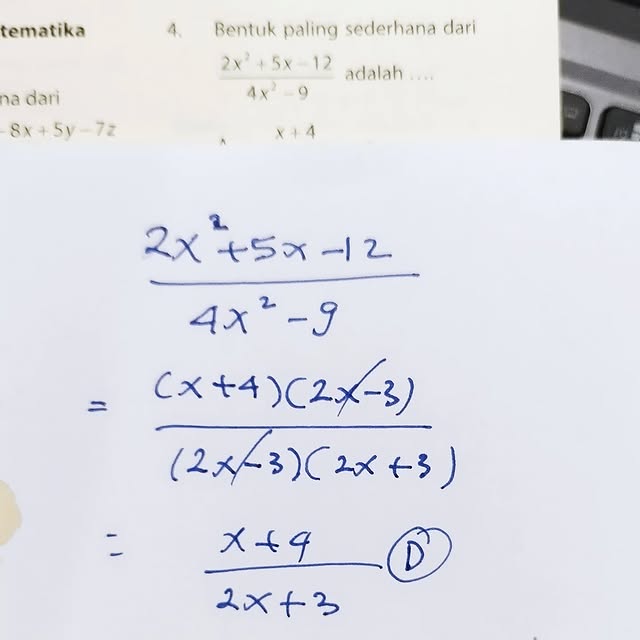 tematika
na dari
-8x+5y-7z
4. Bentuk paling sederhana dari
2x²+5x-12
4x²-9
adalah ....
x+4
2x²+5x-12
4x²-9
= (x+4)(2x-3)
(2x-3)(2x+3)
= x+4
2x+3
D